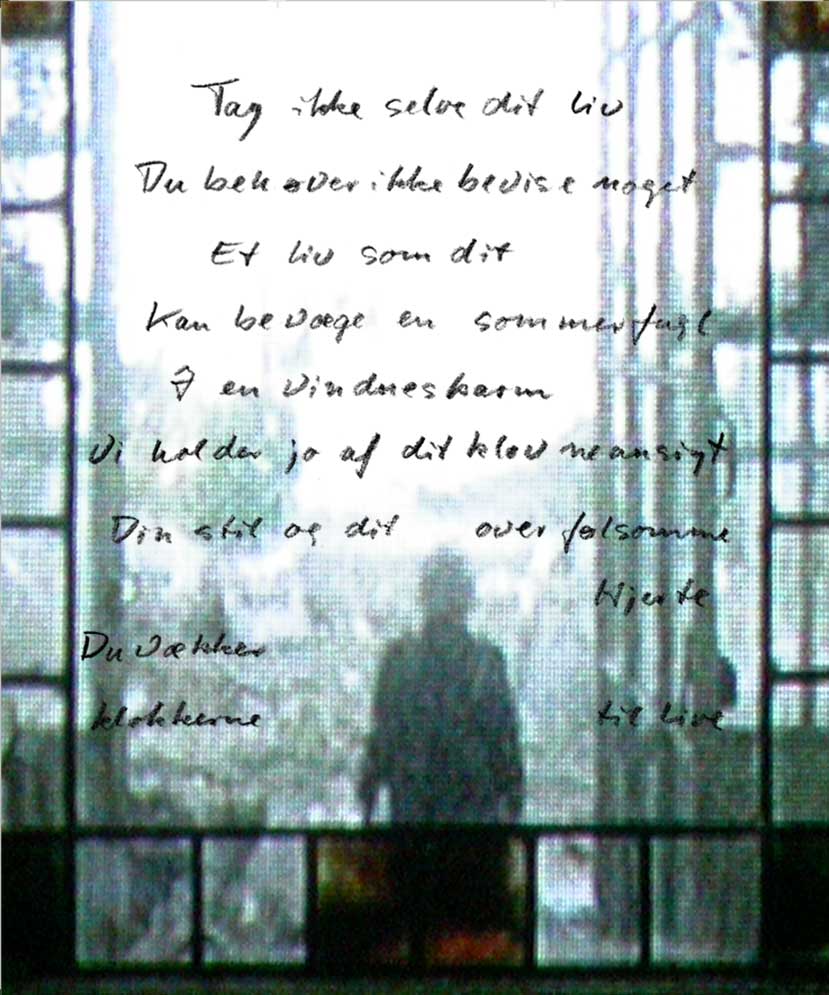 Tag ikke selve dit liv
Du behøver ikke bevise noget
Et liv som dit
Kan bevæge en sommerfugl
I en vindueskarm
Vi holder jo af dit klovneansigt
Din stil og dit overfølsomme
Hjerte
Du vækker
klokkerne til live